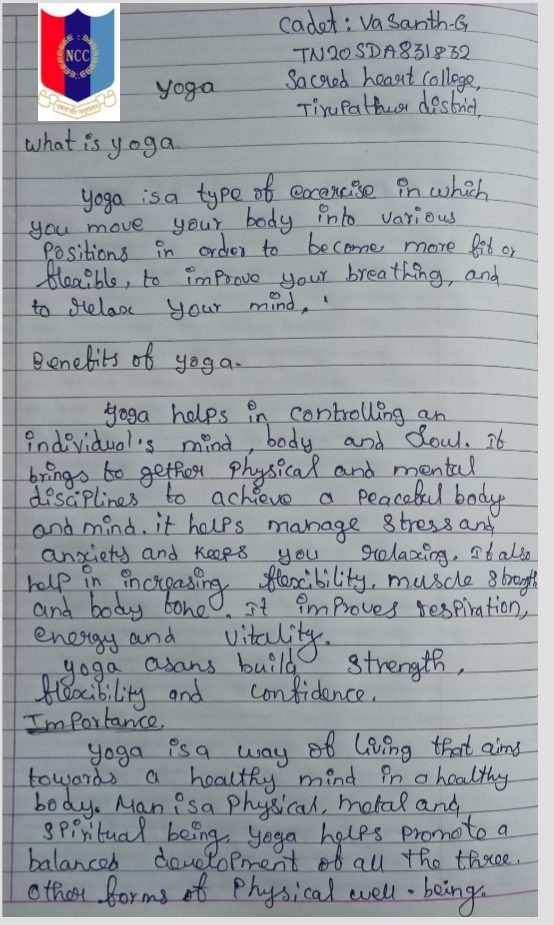 Cadet: Vasanth-G
NCC
TN20SDA831832
Yoga
Sacred heart college,
Tirupathur district,
what is yoga
Yoga is a type of excercise in which
you move your body into various
Positions in order to become more fit or
flexible, to improve your breathing, and
to relax your mind,
Benefits of yoga.
Yoga helps in controlling an
individual's mind, body and soul. it
brings to gether Physical and mental
disciplines to achieve a Peaceful body
and mind. it helps manage stress and
anxiety and keeps you relaxing. it also
help in increasing flexibility, muscle strength
and body tone. it improves respiration,
energy and vitality.
yoga asans build strength,
flexibility and confidence.
Importance.
Yoga is a way of living that aims
towards a healthy mind in a healthy
body. Man is a Physical, metal and
spiritual being, yoga helps promote a
balanced development of all the three.
other forms of Physical well-being.